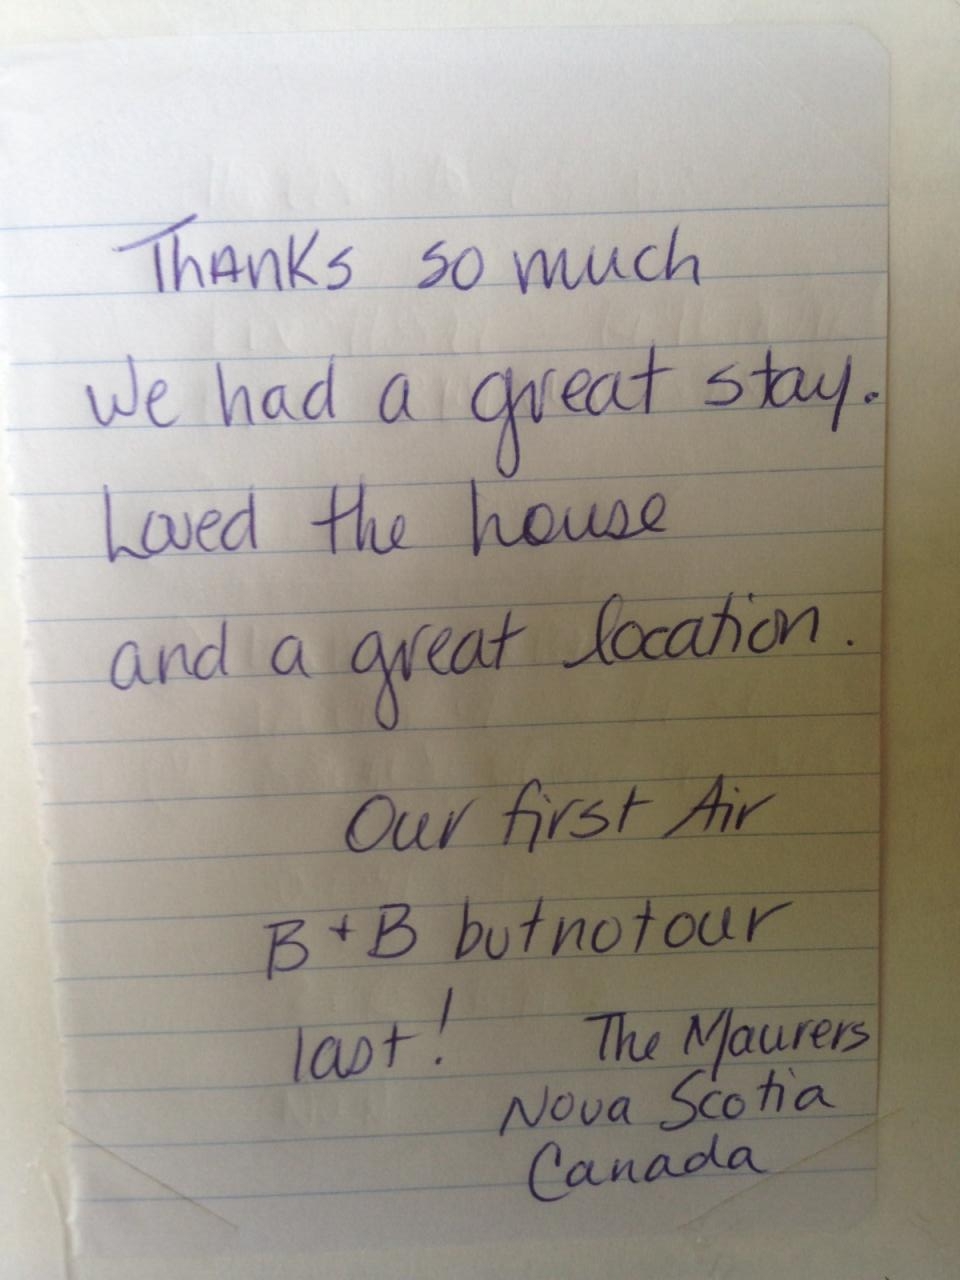 Thanks so much
We had a great stay.
Loved the house
and a great location.
Our first Air
B+B but not our
last! The Maurers
Nova Scotia
Canada